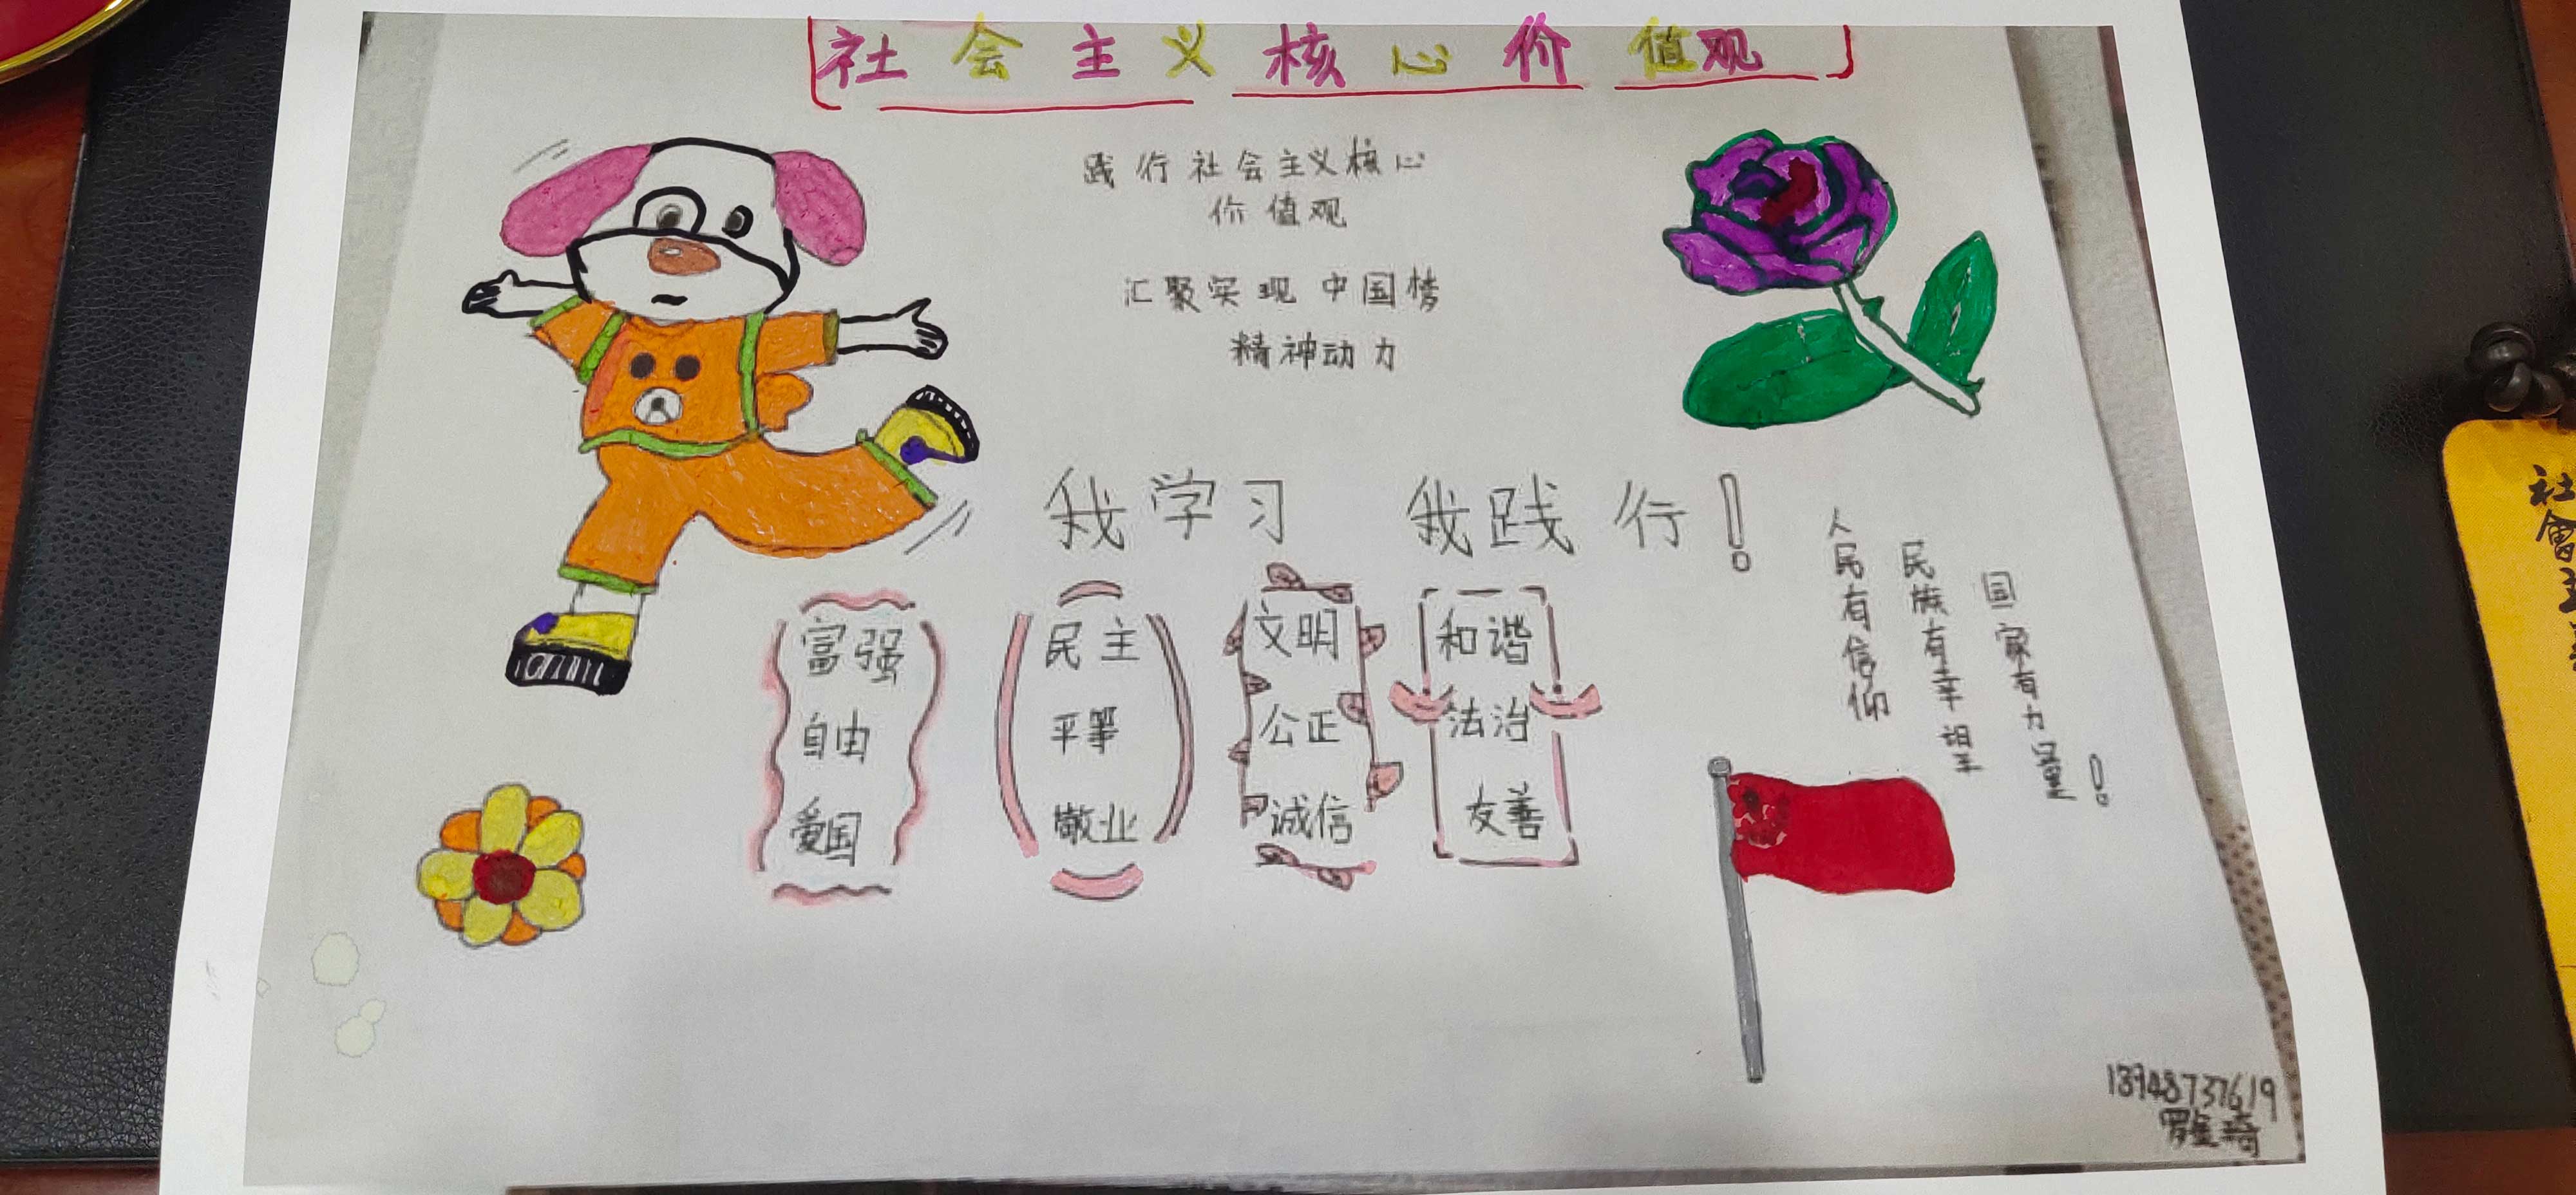 社会主义核心价值观
践行社会主义核心
价值观
汇聚实现中国梦
精神动力
我学习 我践行！
富强
自由
爱国
民主
平等
敬业
文明
公正
诚信
和谐
法治
友善
人民有信仰
民族有幸望
国家有力量！
13948737619
社會主